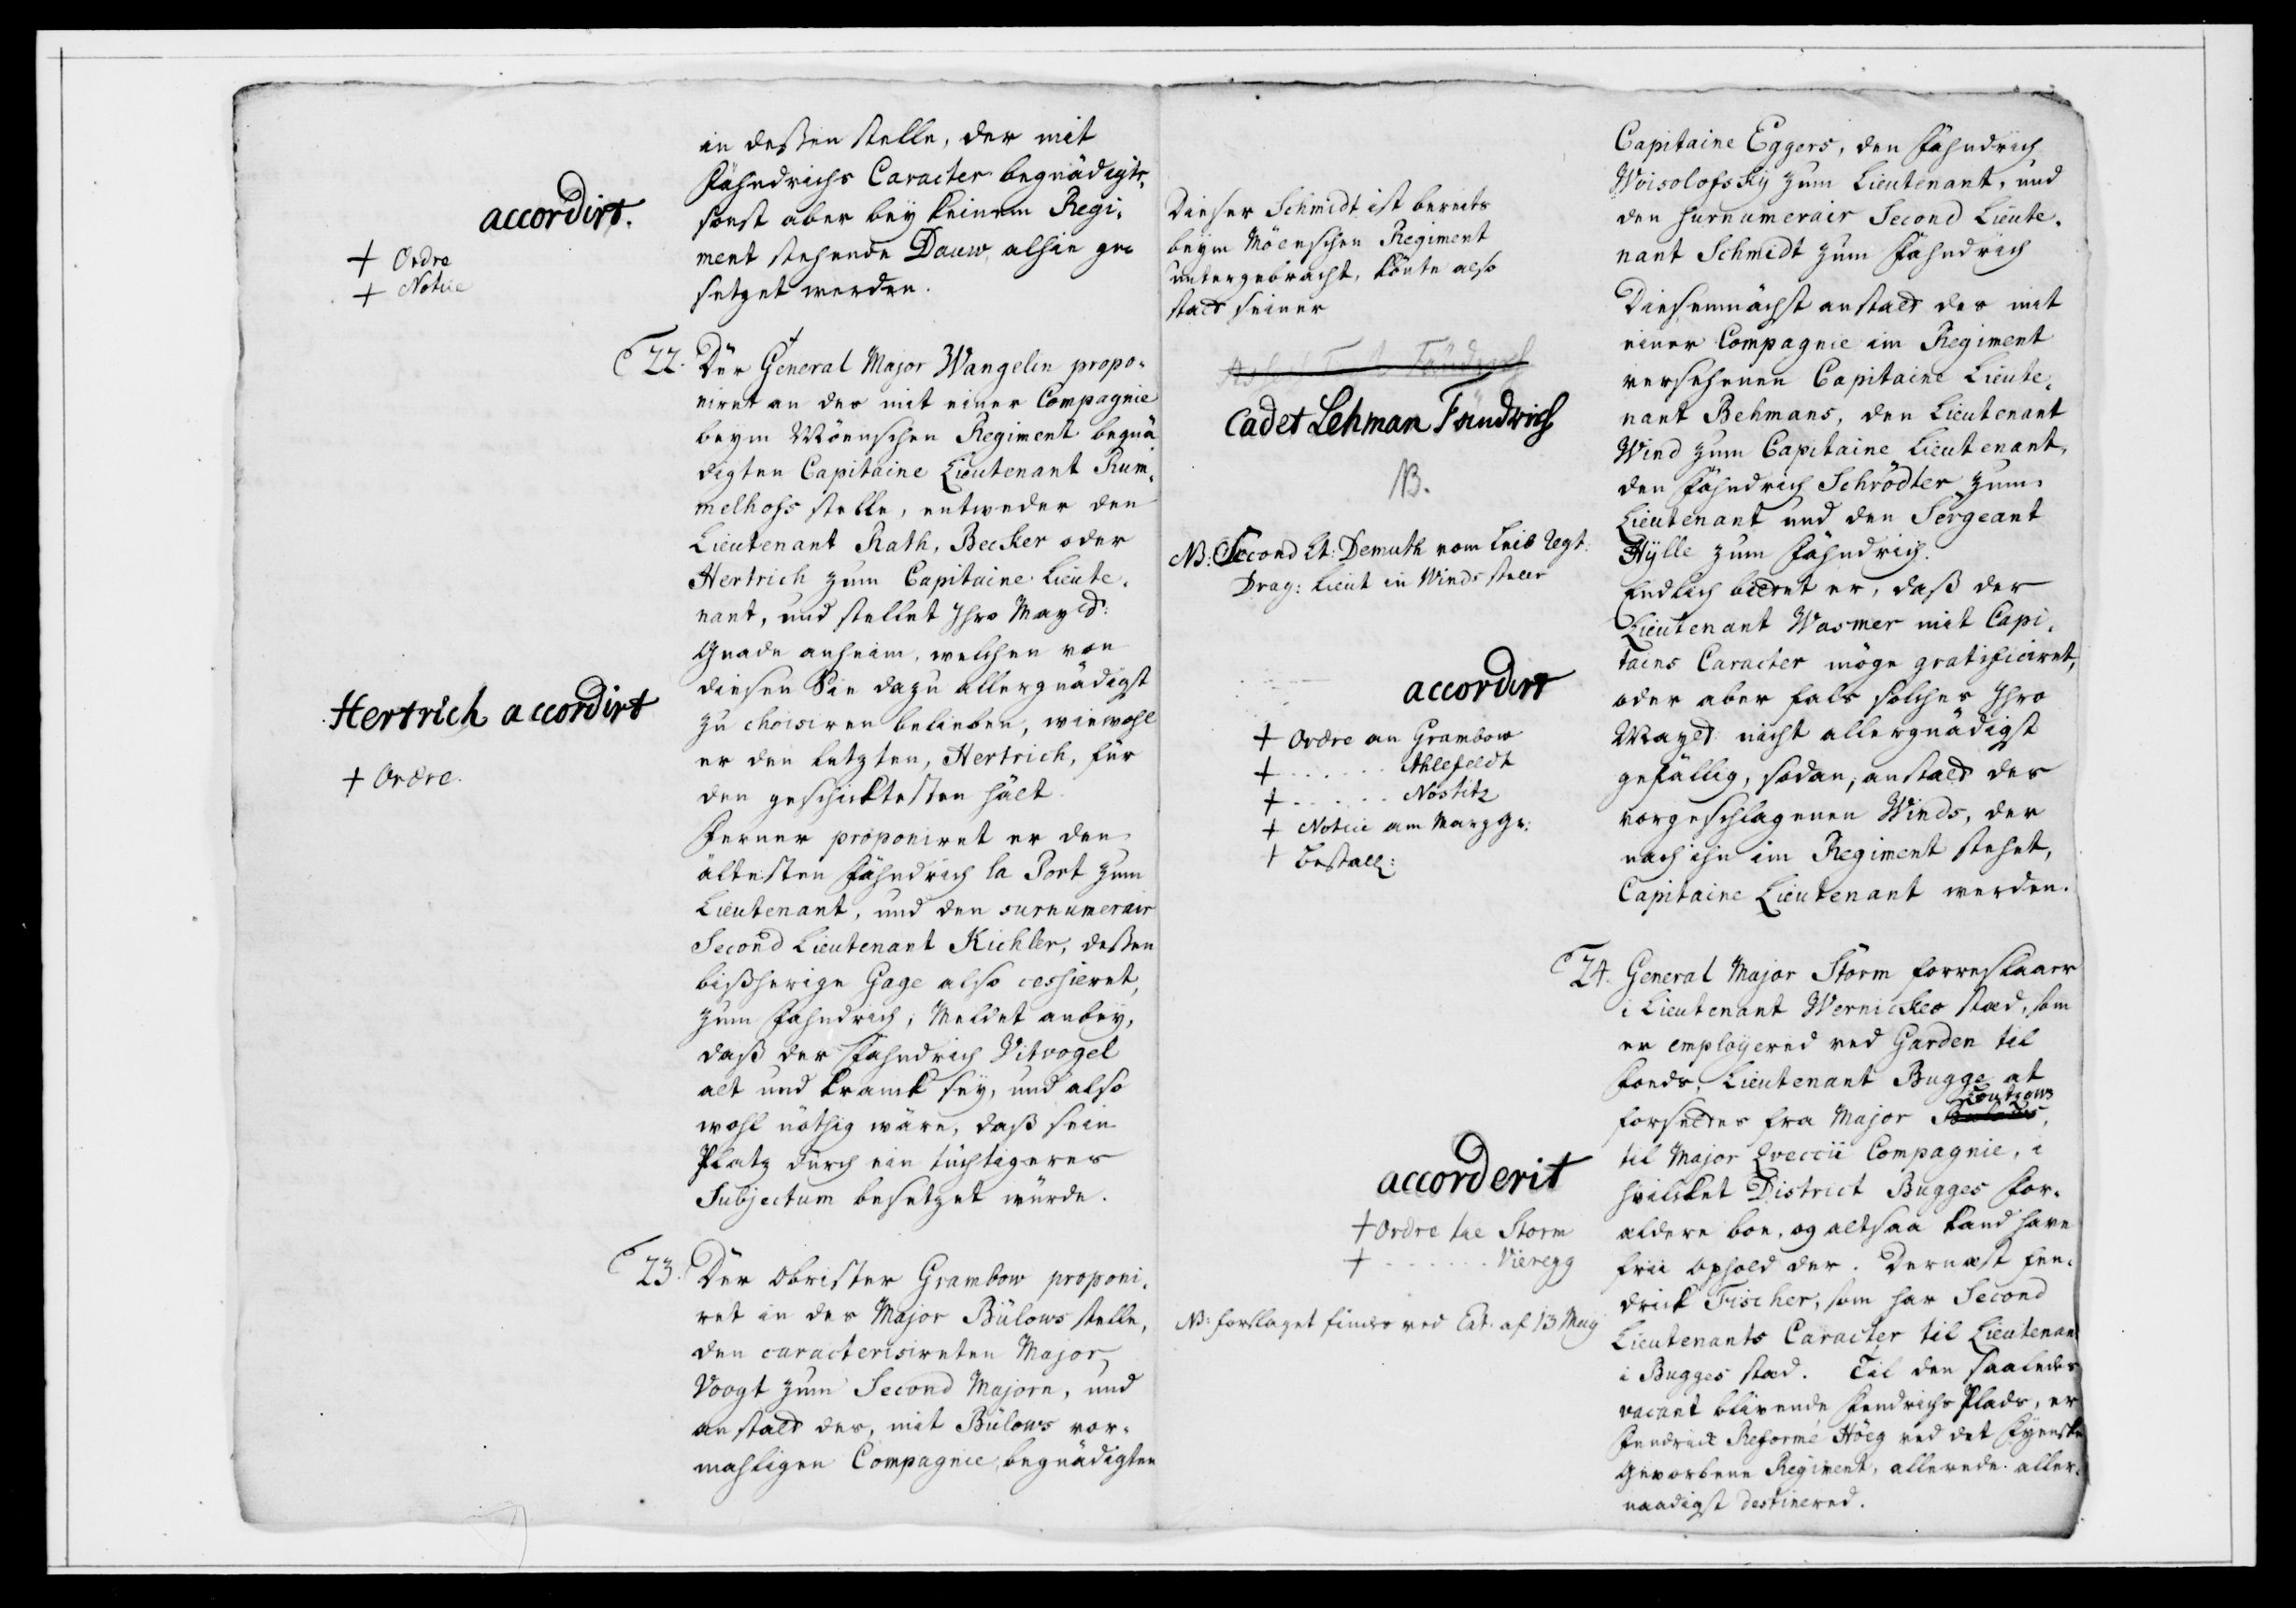 in deßen stelle, der mit
Fähndrichs Caracter begnädigte,
sonst aber bey keinem Regi-
ment stehende Dauw, alhie ge-
setzet werden.
accordirt.
+ Ordre
+ Notice
22. Der General Major Wangelin propo-
niret an des mit einer Compagnie
beym Möenschen Regiment begnä
digten Capitaine Lieutenant Rum-
melhofs stelle, entweder den
Lieutenant Rath, Becker oder
Hertrich zum Capitaine Lieute-
nant, und stellet Ihro Mayst:
Gnade anheim, welchen von
diesen Sie dazu allergnädigst
zu choisiren belieben, wiewohl
er den letzten, Hertrich, für
den geschicktesten hält.
Ferner proponiret er den
ältesten Fähndrich la Port zum
Lieutenant, und den surnumerair
Second Lieutenant Kichler, deßen
bißherige Gage also cessieret,
zum Fähndrich; Meldet anbey,
daß der Fähndrich Vitvogel
alt und kranck sey, und also
wohl nöthig wäre, daß sein
Platz durch ein tüchtigeres
Subjectum besetzet würde.
Hertrich accordirt
+ Ordre.
23. Der Obrister Grambow proponi-
ret in des Major Bülows stelle,
den caracterisireten Major
Voogt zum Second Majorn, und
anstatt des, mit Bülows vor-
mahligen Compagnie, begnädigten
Capitaine Eggers, den Fähndrich
Woisolofsky zum Lieutenant, und
den surnumerair Second Lieute-
nant Schmidt zum Fähndrich
Diesemnächst anstatt des mit
einer Compagnie im Regiment
versehenen Capitaine Lieute-
nant Behmans, den Lieutenant
Wind zum Capitaine Lieutenant,
den Fähndrich Schrödter zum
Lieutenant und den Sergeant
Hylle zum Fähndrich.
Endlich bittet er, daß der
Lieutenant Wasmer mit Capi-
tains Caracter möge gratificiret,
oder aber fals solches Ihro
Mayst: nicht allergnädigst
gefällig, sodan, anstatt des
vorgeschlagenen Winds, der
nach ihn im Regiment stehet,
Capitaine Lieutenant werden.
Dieser Schmidt ist bereits
beym Möenschen Regiment
untergebracht, könte also
statt seiner
Cadet Lehman Fändrich
NB.
NB: Second Lt: Demuth vom Leib Regt:
Drag: Lieut in Winds stelle
accordirt
+ Ordre an Grambow
+ . . . . . . Ahlefeldt
+ . . . . . . Nostitz
+ Notice am Marggr:
+ Bestall:
24. General Major Storm foreslaaer
i Lieutenant Wernickes stæd, som
er employered ved Garden til
Foeds, Lieutenant Bugge at
forsettes fra Major
til Major Qveccii Compagnie, i
hvilket District Bugges For-
ældere boe, og altsaa kand have
frii Ophold der. Dernæst Fen-
drick Fischer, som har Second
Lieutenants Caracter til Lieutenant
i Bugges stæd. Til den saaledes
vacant blivende Fendrichs Plads, er
Fendrick Reformé Höeg ved det Fyenske
Gevorbene Regiment, allerede aller-
naadigst destinered.
accorderit
+ Ordre til Storm
+ . . . . . . Vieregg
NB: forslaget findes ved Ext. af 13 May